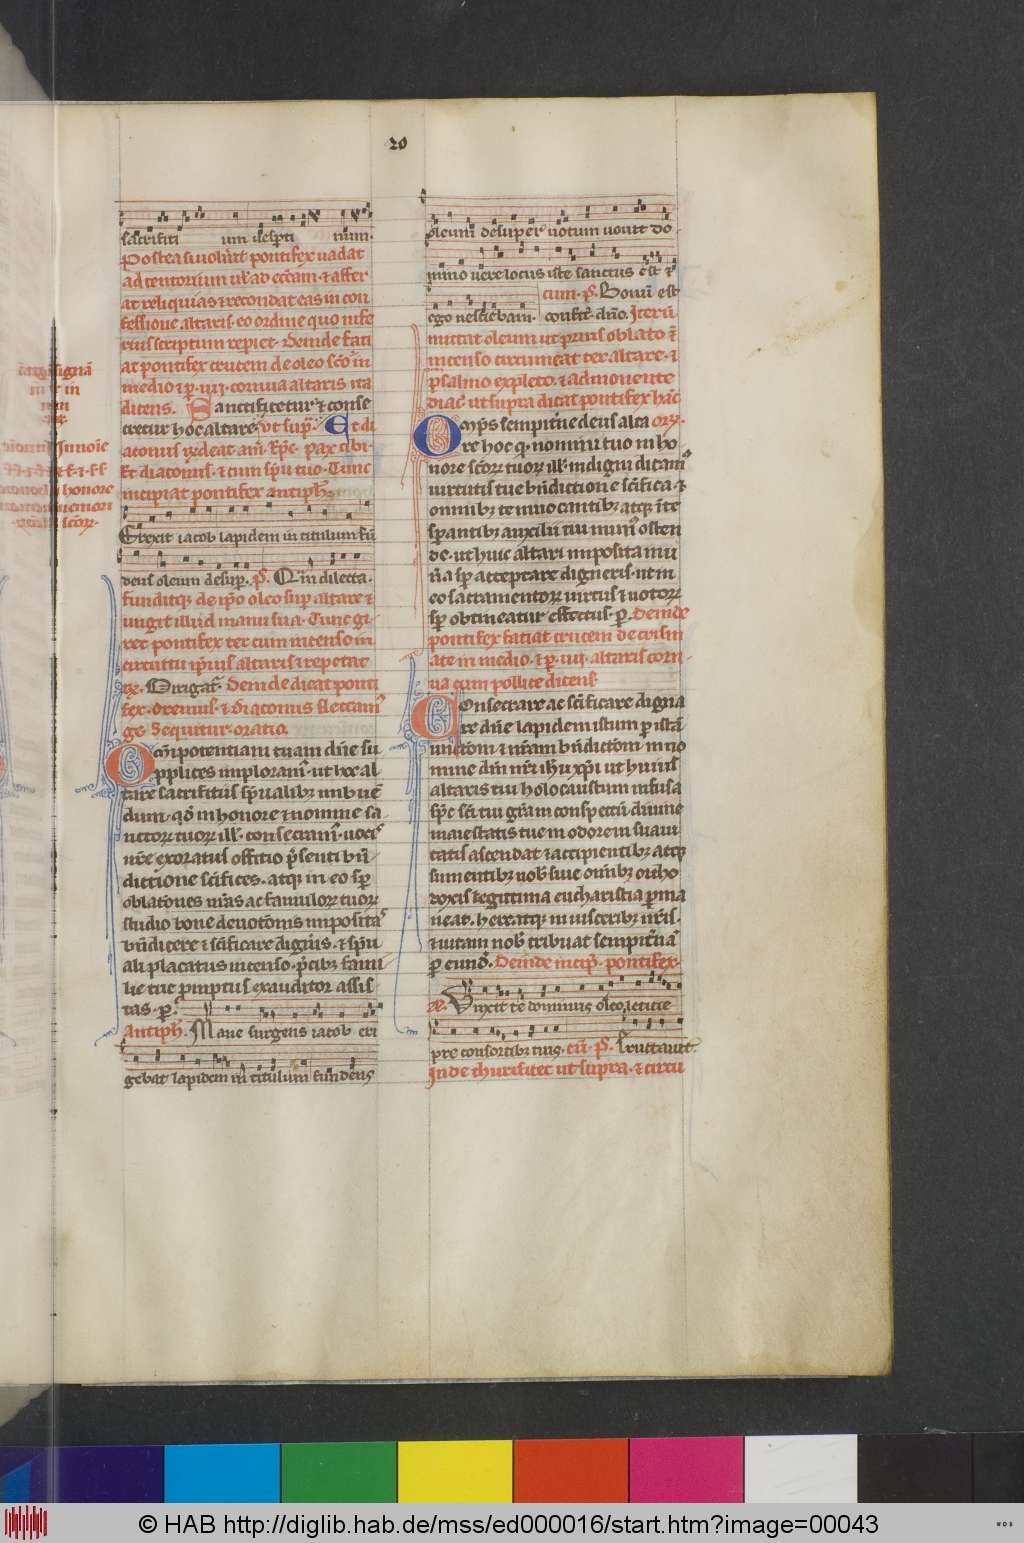 20
sacrifiti um uespti num.
Postea si uoluit pontifex uadat
ad tentorium ul' ad eccam ⁊ affer
at reliquias ⁊ recondat eas in con
fessione altaris. eo ordine quo infe
rius scriptum repiet. Deinde faci
at pontifex crucem de oleo sco in
medio ⁊ p. iiii. cornua altaris ita
dicens. Sanctificetur ⁊ conse
cretur hoc altare, ut sup. Et di
aconus rndeat am. Epc. Pax tibi.
Et diaconus. ⁊ cum spu tuo. Tunc
incipiat pontifex antiph.
Erexit iacob lapidem in titulum fu
dens oleum desup. ps. Qm dilecta.
funditq; de ipo oleo sup altare ⁊
ungit illud manu sua. Tunc gi
ret pontifex ter cum incenso in
circuitu ipsius altaris ⁊ repetat
Dirigat'. Deinde dicat ponti
fex. Oremus. ⁊ diaconus flectam'
ge Sequitur oratio.
Omipotentiam tuam dne su
pplices imploram'. ut hoc al
tare sacrifitiis spualib; imbuē
dum. qd in honore ⁊ nomine sa
nctor tuor ill'. consecram'. uocis
nre exoratus offitio psenti bn
dictione scifices. atq; in eo sp
oblatones nras ac famulor tuor
studio bone deuotonis impositas
bndicere ⁊ scificare digneris. ⁊ spu
ali placatus incenso. pcib; fami
lie tue pmptus exauditor assis
tas. p.
Antiph. Mane surgens iacob eri
gebat lapidem in titulum fundens
oleum desuper uotum uouit do
mino uere locus iste sanctus est ⁊
cum ps. Bonu est
ego nesciebam. confit. dno. Iteru
mittat oleum ut prius oblato ⁊
incenso circumeat ter altare. ⁊
psalmo expleto. ⁊ admonente
diac' ut supra dicat pontifex hac
Omps sempitne deus alta or.
re hoc q. nomini tuo in ho
nore scor tuor ill'. indigni dicam'
uirtutis tue bndictione scifica. ⁊
omnib; te inuocantib; atq; in te
spantib; auxilii tui mun' osten
de. ut huic altari imposita mu
na sp acceptare digneris. ut in
eo sacramentor uirtus ⁊ uotor
sp obtineatur effectus. p. Deinde
pontifex faciat crucem de crism
ate in medio. ⁊ p. iiii. altaris corn
ua cum pollice dicens
Consecrare ac scificare digna
re dne lapidem istum p ista
unctom ⁊ nram bndictom in no
mine dni nri ihu xpi ut huius
altaris tui holocaustum infusa
spc sci tui gram conspectu diuine
maiestatis tue in odorem suaui
tatis ascendat ⁊ accipientib; atq;
sumentib; nob' siue omib; ortho
doxis legittima eucharistia pma
neat. hereatq; in uisceribz nris.
⁊ uitam nob' tribuat sempitna
p eund. Deinde incip. pontifex.
Vnxit te dominus oleo leticie
pre consortib; tuis. cu. ps. Eructauit.
Inde thurificet ut supra. ⁊ circu
© HAB http://diglib.hab.de/mss/ed000016/start.htm?image=00043